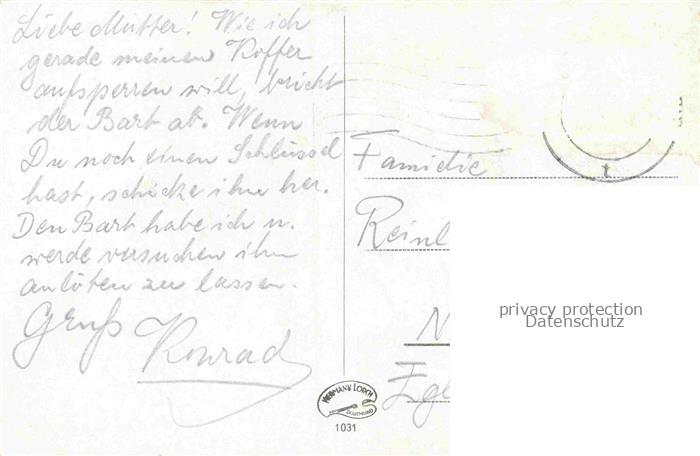 Liebe Mutter! Wie ich
gerade meinen Koffer
aufsperren will, bricht
der Bart ab. Wenn
Du noch einen Schlüssel
hast, schicke ihn her.
Den Bart habe ich u.
werde versuchen ihn
anlöten zu lassen.
Gruß
Konrad
Familie
Reinl
N
Egl
privacy protection
Datenschutz
HERMANN LORCH
DORTMUND
1031